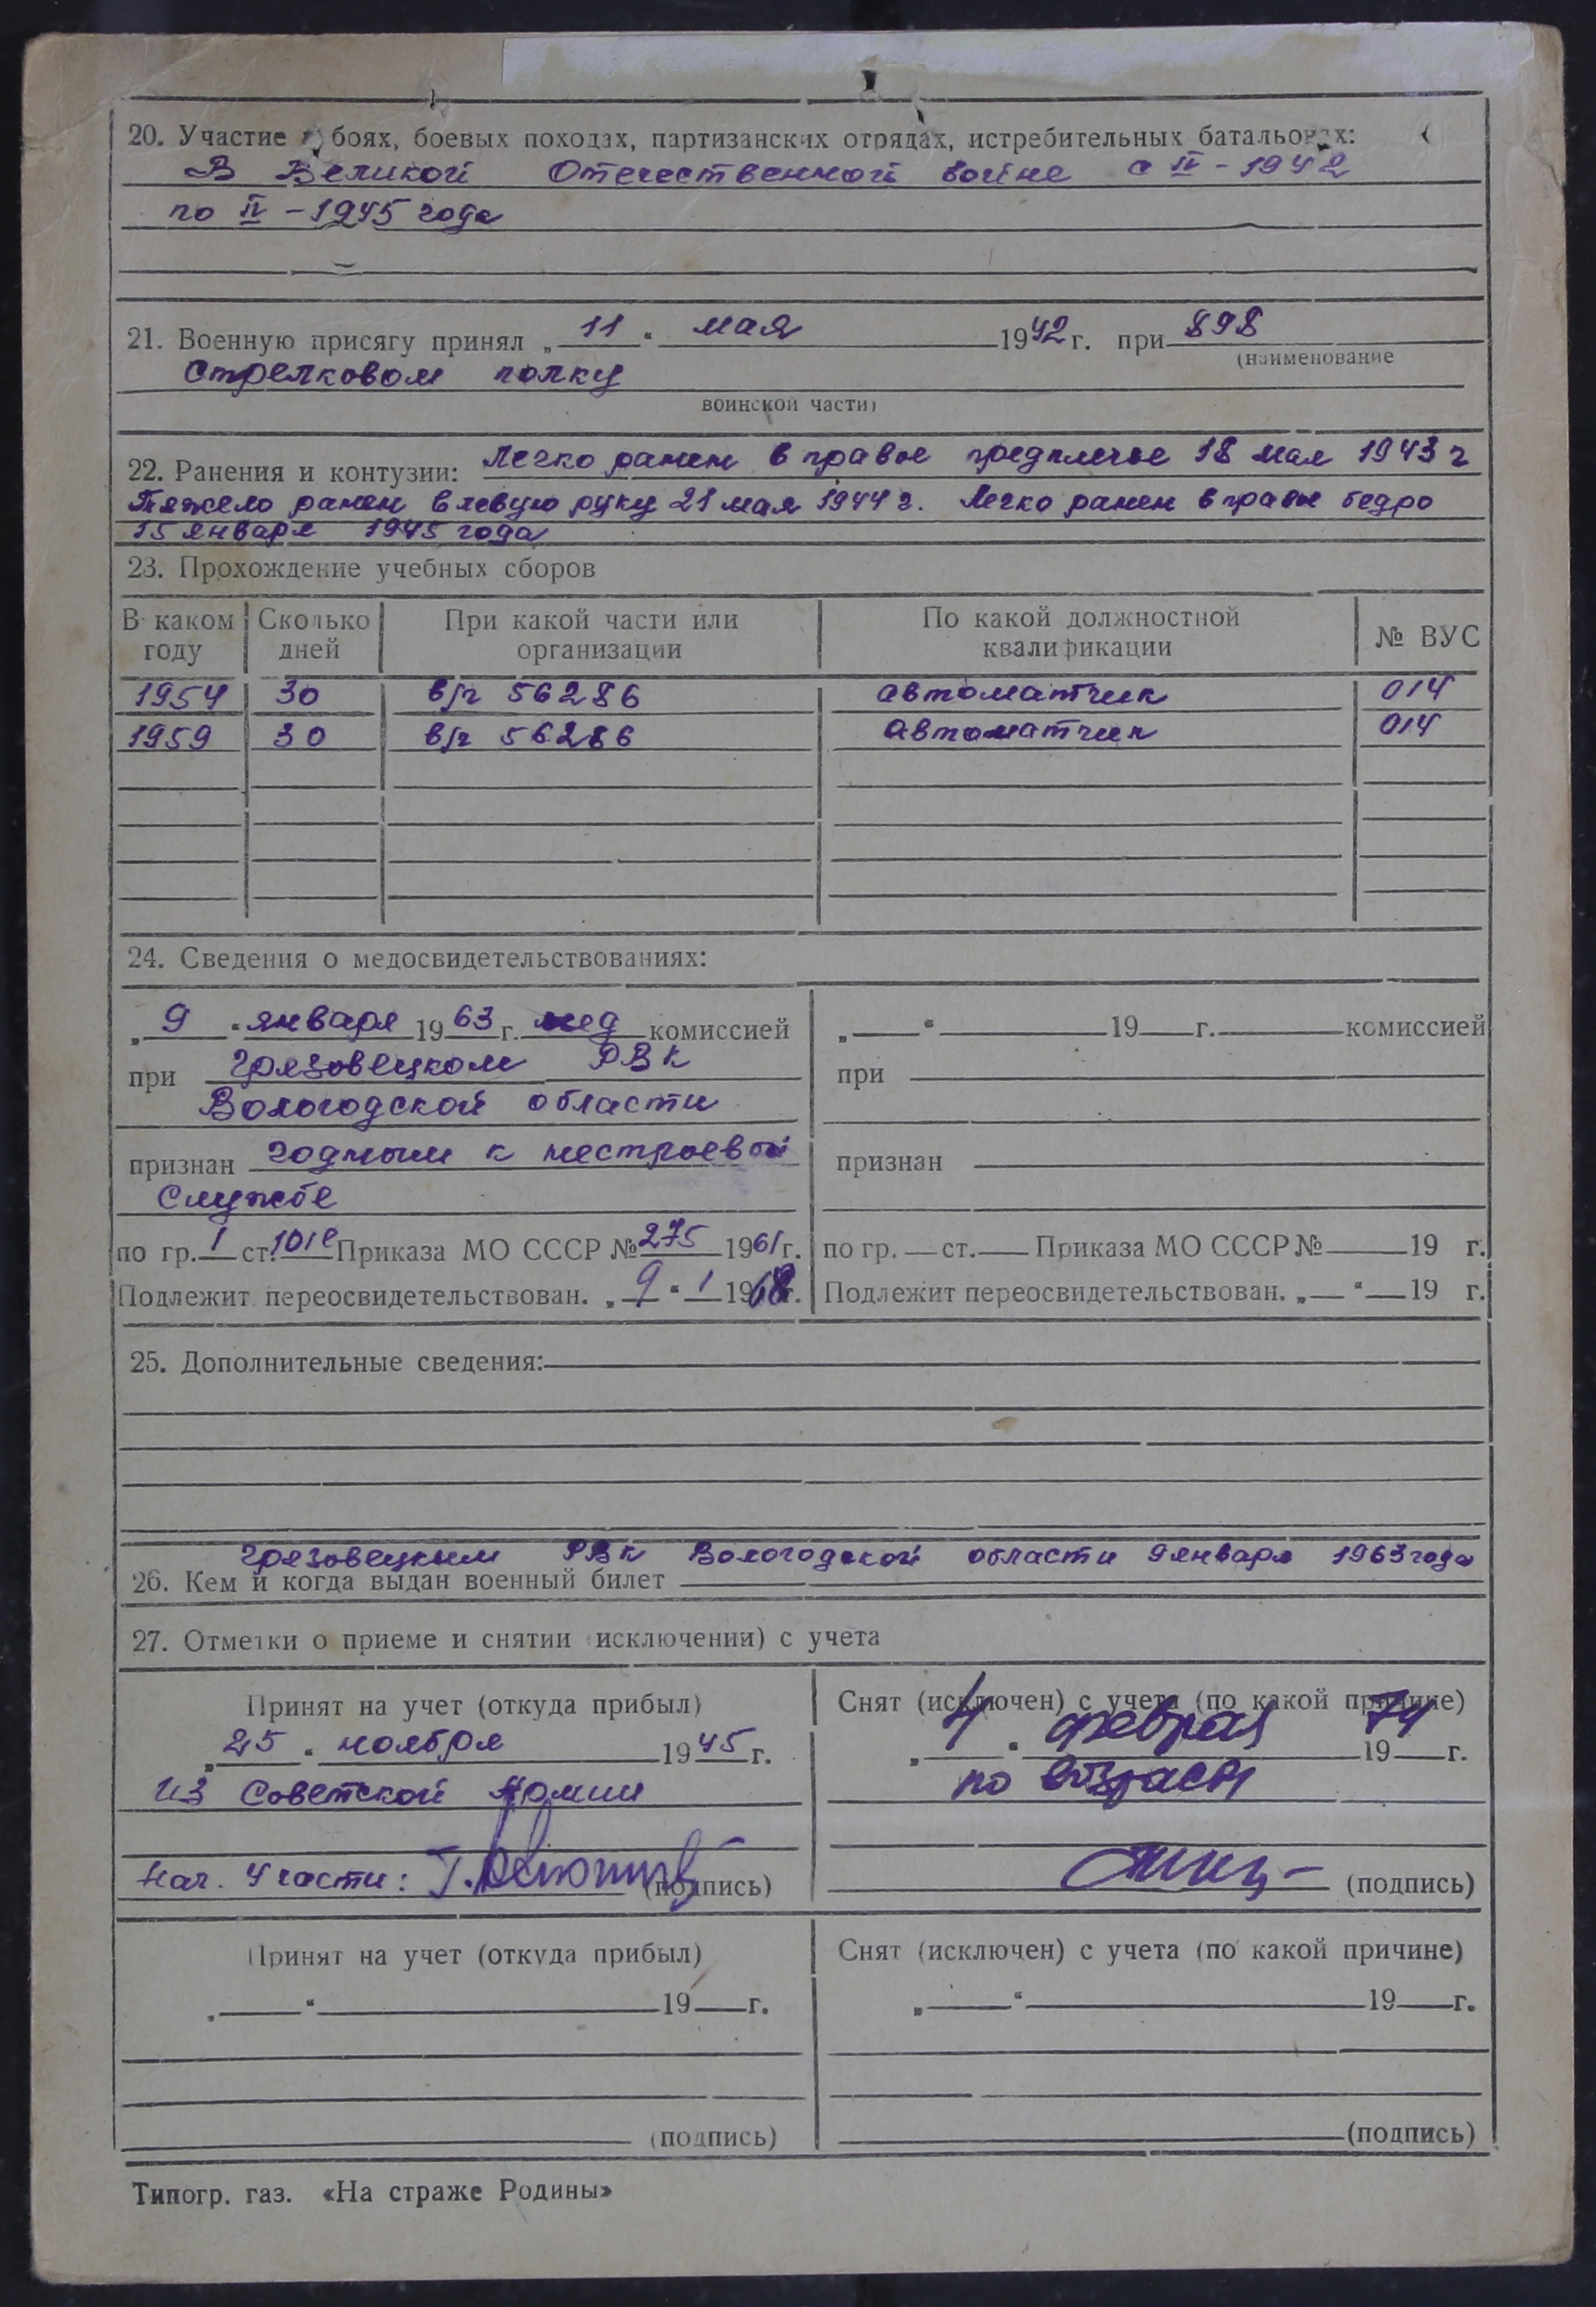 20. Участие в боях, боевых походах, партизанских отрядах, истребительных батальонах:
В Великой Отечественной войне с II-1942
по II-1945 года
21. Военную присягу принял „11“ мая 1942 г. при 898
(наименование
Стрелковом полку
воинской части)
22. Ранения и контузии: Легко ранен в правое предплечье 18 мая 1943 г
Тяжело ранен в левую руку 21 мая 1944 г. Легко ранен в правое бедро
15 января 1945 года
23. Прохождение учебных сборов
В каком году | Сколько дней | При какой части или организации | По какой должностной квалификации | № ВУС
1954 | 30 | в/ч 56286 | автоматчик | 014
1959 | 30 | в/ч 56286 | автоматчик | 014
24. Сведения о медосвидетельствованиях:
„9“ января 1963 г. мед комиссией
при Грязовецком РВК
Вологодской области
признан годным к нестроевой
Службе
по гр. 1 ст. 101е Приказа МО СССР № 275 1961 г.
Подлежит переосвидетельствован. „9“ 1 1968 г.
„ “ 19 г. комиссией
при
признан
по гр. ст. Приказа МО СССР № 19 г.
Подлежит переосвидетельствован. „ “ 19 г.
25. Дополнительные сведения:
Грязовецким РВК Вологодской области 9 января 1963 года
26. Кем и когда выдан военный билет
27. Отметки о приеме и снятии (исключении) с учета
Принят на учет (откуда прибыл)
„25“ ноября 1945 г.
из Советской Армии
Нач. 4 части: (подпись)
Снят (исключен) с учета (по какой причине)
„4“ февраля 1974 г.
по возрасту
(подпись)
Принят на учет (откуда прибыл)
„ “ 19 г.
(подпись)
Снят (исключен) с учета (по какой причине)
„ “ 19 г.
(подпись)
Типогр. газ. «На страже Родины»